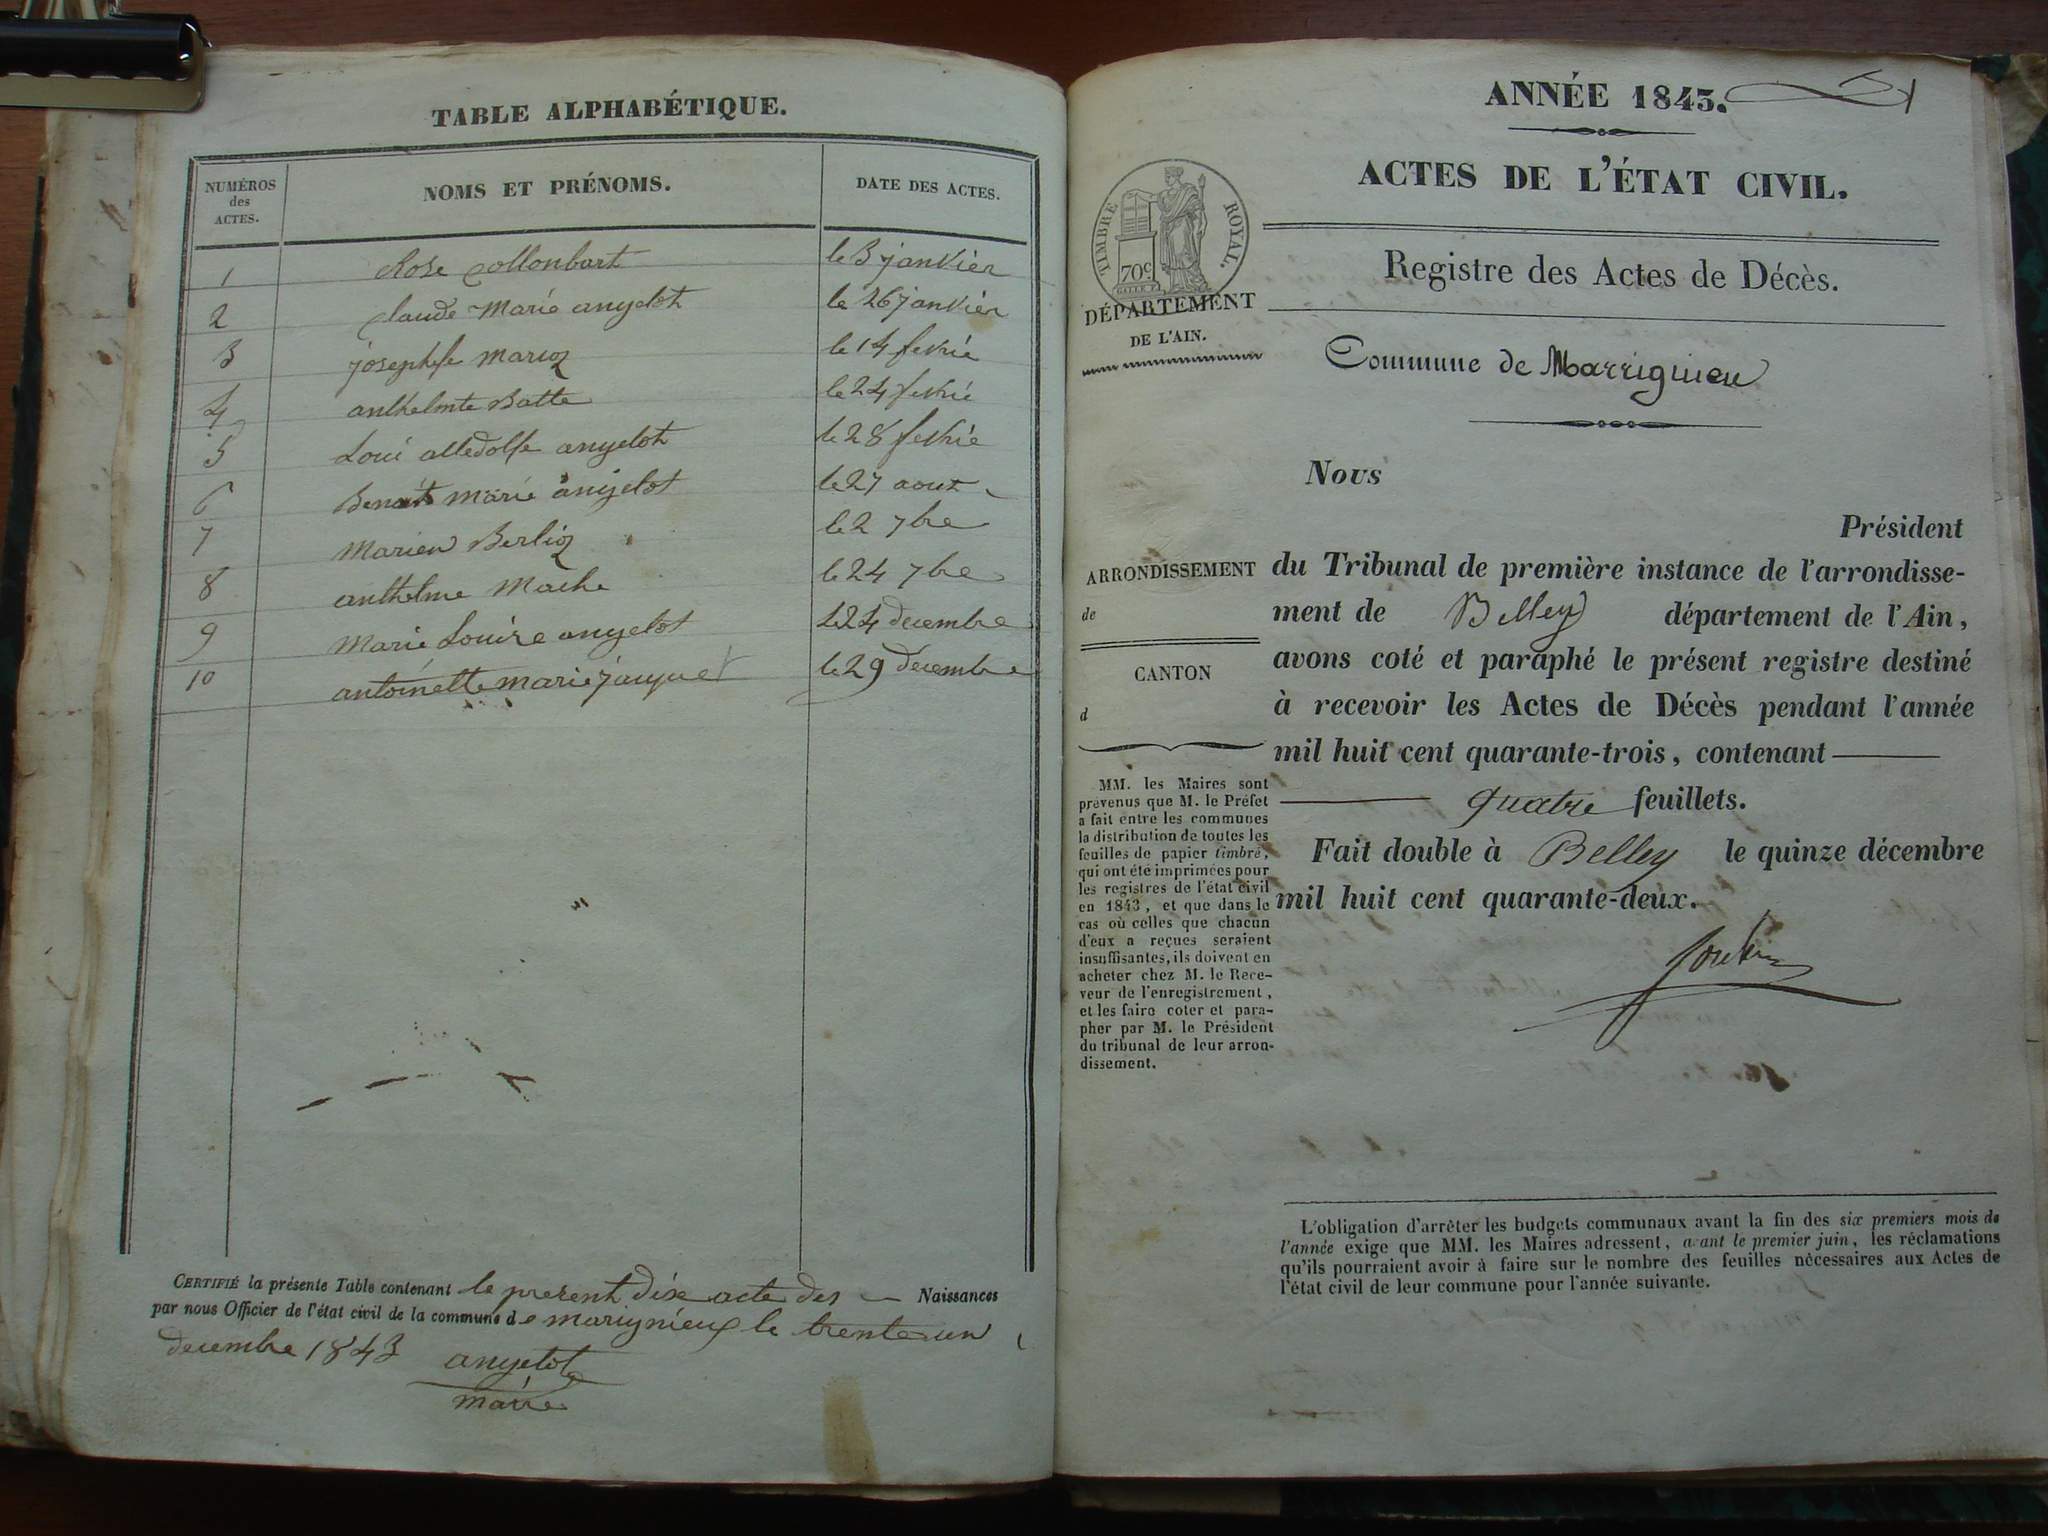 TABLE ALPHABÉTIQUE.
NUMÉROS
des
ACTES.
NOMS ET PRÉNOMS.
DATE DES ACTES.
1 Rose Collonbart le 3 janvier
2 Claude Marie angelot le 26 janvier
3 josephfe marioz le 14 fevrié
4 anthelmte Batte le 24 fevrié
5 Loui angelot le 28 fevrié
6 Benoit marie angelot le 27 aout
7 Marien Berlioz le 2 7bre
8 anthelme Mache le 24 7bre
9 Marie Louise angelot le 24 decembre
10 antoinette marie jaquet le 29 décembre
CERTIFIÉ la présente Table contenant le present dix acte des Naissances
par nous Officier de l'état civil de la commune de marignieux le trente un
decembre 1843 angelot
maire
ANNÉE 1843.
ACTES DE L'ÉTAT CIVIL.
TIMBRE ROYAL.
70c
Registre des Actes de Décès.
DÉPARTEMENT
DE L'AIN.
Commune de Marrignieu
Nous
Président
ARRONDISSEMENT
de
CANTON
d
du Tribunal de première instance de l'arrondisse-
ment de Belley département de l'Ain,
avons coté et paraphé le présent registre destiné
à recevoir les Actes de Décès pendant l'année
mil huit cent quarante-trois, contenant
quatre feuillets.
Fait double à Belley le quinze décembre
mil huit cent quarante-deux.
MM. les Maires sont
prévenus que M. le Préfet
a fait entre les communes
la distribution de toutes les
feuilles de papier timbré,
qui ont été imprimées pour
les registres de l'état civil
en 1843, et que dans le
cas où celles que chacun
d'eux a reçues seraient
insuffisantes, ils doivent en
acheter chez M. le Rece-
veur de l'enregistrement,
et les faire coter et para-
pher par M. le Président
du tribunal de leur arron-
dissement.
L'obligation d'arrêter les budgets communaux avant la fin des six premiers mois de
l'année exige que MM. les Maires adressent, avant le premier juin, les réclamations
qu'ils pourraient avoir à faire sur le nombre des feuilles nécessaires aux Actes de
l'état civil de leur commune pour l'année suivante.